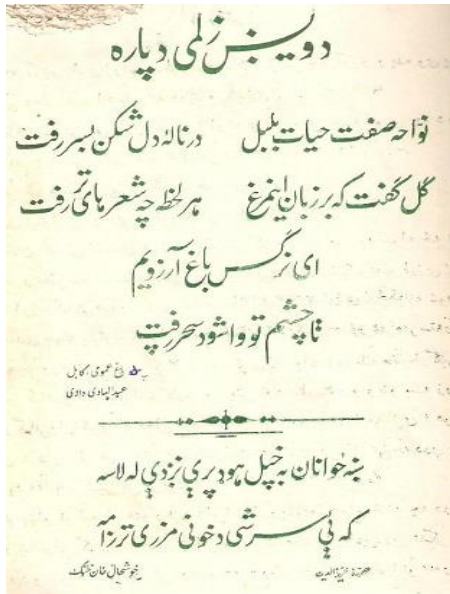 د ویښ زلمی دپاره
نواحه صفت حیات بلبل در نالهٔ دل شکن بسر رفت
گل گفت که بر زبان اینمرغ هر لحظه چه شعرهای تر رفت
ای نرگس باغ آرزویم
تا چشم تو وا شود سحر رفت
باغ عمومی، کابل
عبدالهادی داوی
ښه ځوانان به خپل هوډ پرې نږدي له لاسه
که ئې سر شی د خونی مزری تر زامه
خوشحال خان خټک